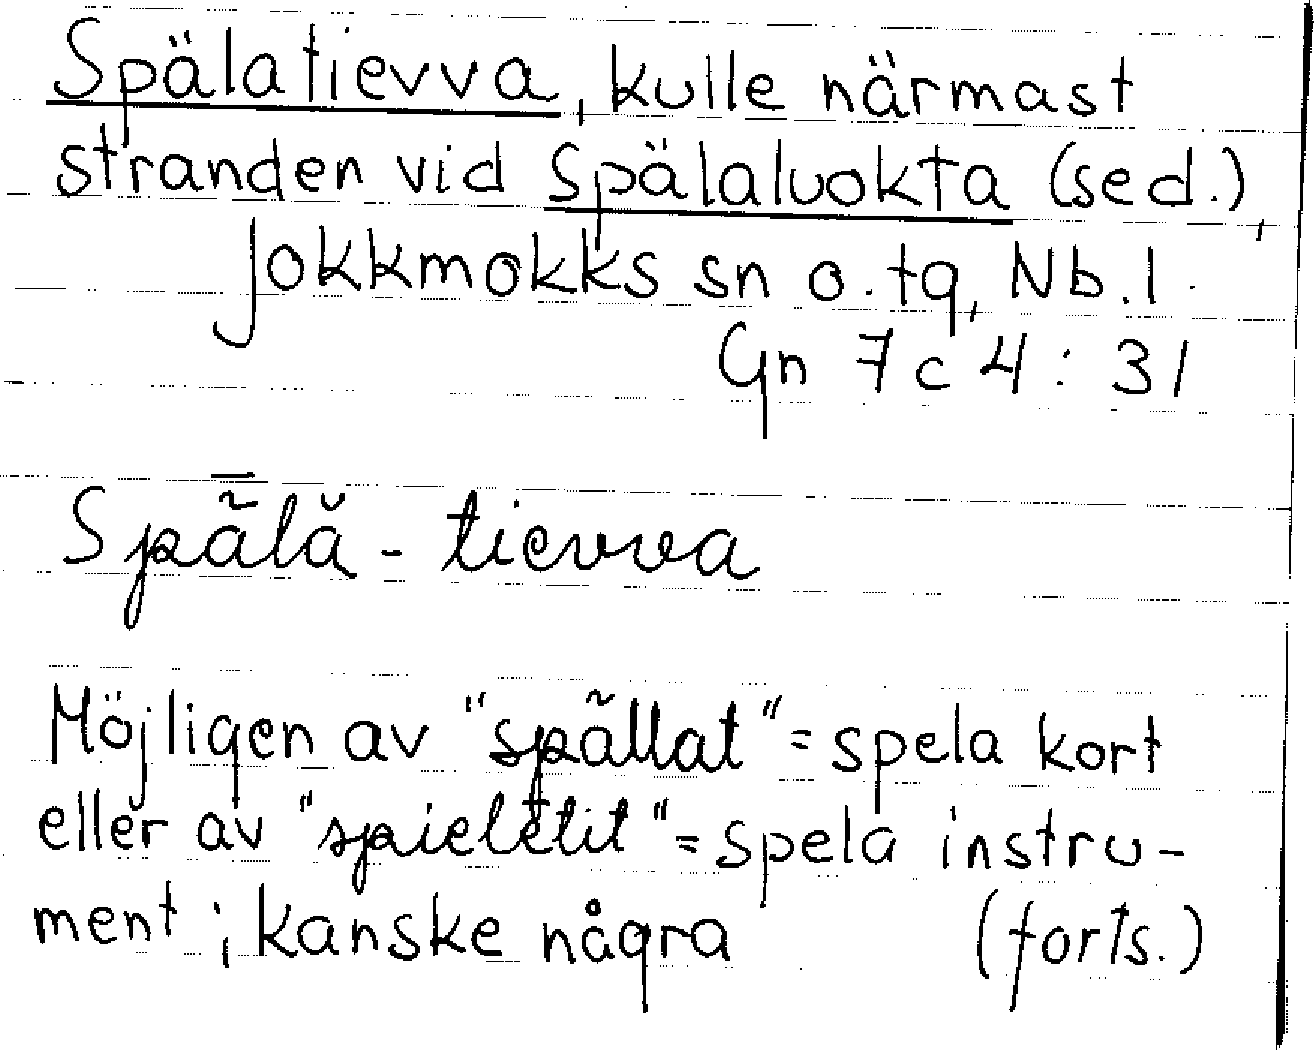 Spälatievva, kulle närmast
stranden vid Spälaluokta (sed.),
Jokkmokks sn o. tg, Nb. l.
Gn 7 c 4 : 31
Spā̃lă - tievva
Möjligen av "spãllat" = spela kort
eller av "spieletit" = spela instru-
ment ; kanske några (forts.)